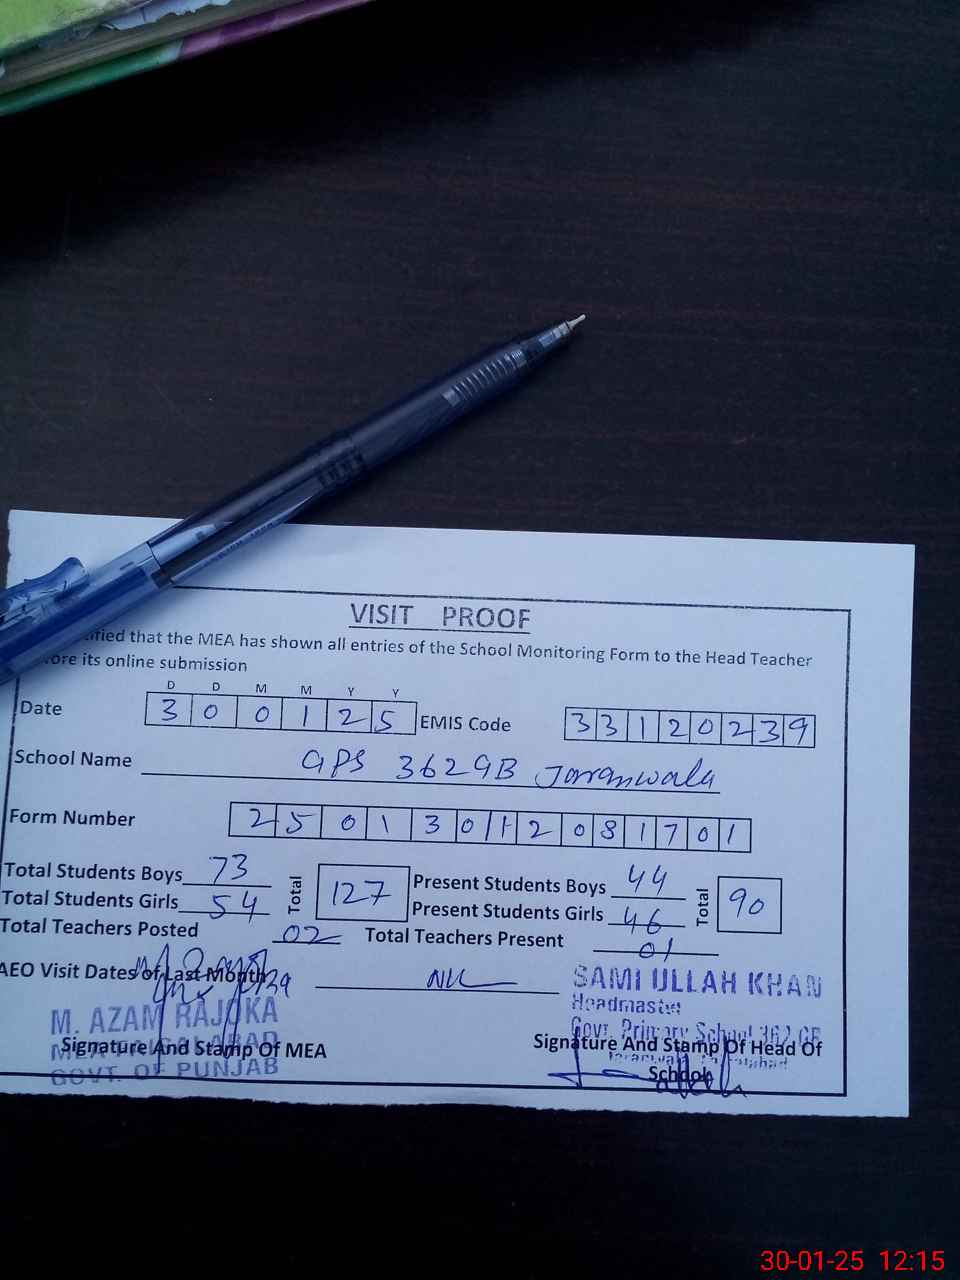 VISIT PROOF
tified that the MEA has shown all entries of the School Monitoring Form to the Head Teacher
ore its online submission
D D M M Y Y
Date 3 0 0 1 2 5 EMIS Code 3 3 1 2 0 2 3 9
School Name GPS 362 GB Jaranwala
Form Number 2 5 0 1 3 0 1 2 0 8 1 7 0 1
Total Students Boys 73 Total 127 Present Students Boys 44 Total 90
Total Students Girls 54 Present Students Girls 46
Total Teachers Posted 02 Total Teachers Present 01
AEO Visit Dates of Last Month Nil
M. AZAM RAJOKA
MEA FAISALABAD
GOVT. OF PUNJAB
Signature And Stamp Of MEA
SAMI ULLAH KHAN
Headmaster
Govt. Primary School 362 GB
Jaranwala Faisalabad
Signature And Stamp Of Head Of
School
30-01-25 12:15